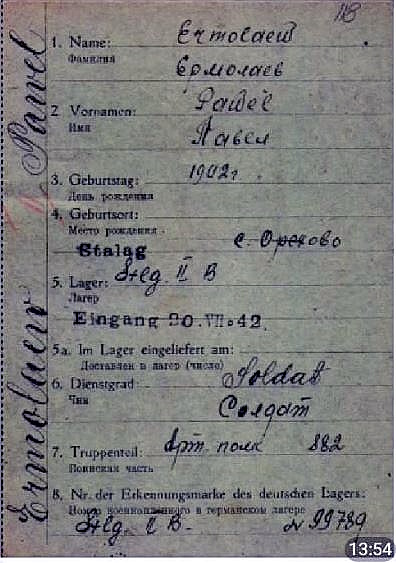 118
1. Name: Ermolaew
Фамилия Ермолаев
2 Vornamen: Pawel
Имя Павел
3. Geburtstag: 1902г
День рождения
4. Geburtsort:
Место рождения с. Орехово
Stalag
5. Lager: Stlg. II B
Лагер
Eingang 20.VII.42.
5a. Im Lager eingeliefert am:
Доставлен в лагер (число)
6. Dienstgrad: Soldat
Чин Солдат
7. Truppenteil: Арт. полк 882
Воинская часть
8. Nr. der Erkennungsmarke des deutschen Lagers:
Номер военнопленного в германском лагере
Stlg. II B. № 99789
Ermolaew Pawel
13:54